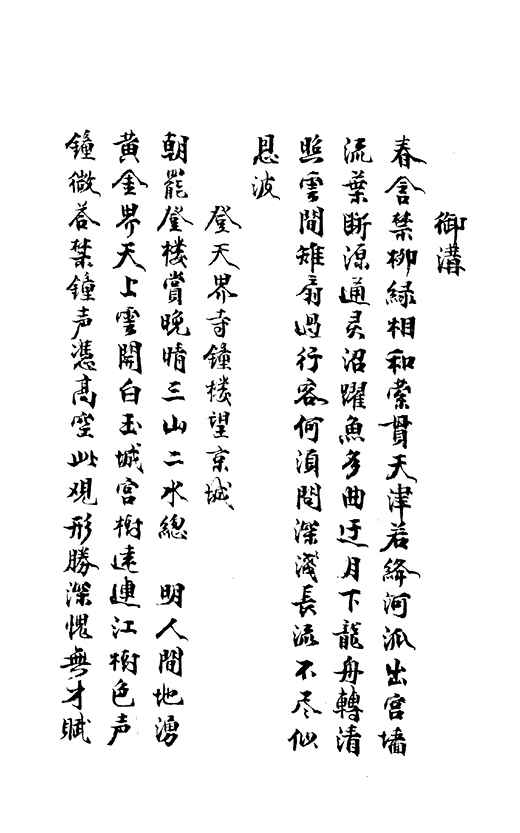 御溝
春含禁柳緑相和縈貫天津若絳河派出宮墻
流葉斷源通灵沼躍魚多曲迂月下龍舟轉清
照雲間雉扇過行客何湏問深淺長流不尽仙
恩波
登天界寺鐘楼望京城
朝罷登楼賞晚晴三山二水總 明人間地湧
黄金界天上雲開白玉城宮樹遠連江樹色声
鐘微答禁鐘声憑高空此观形勝深愧無才賦